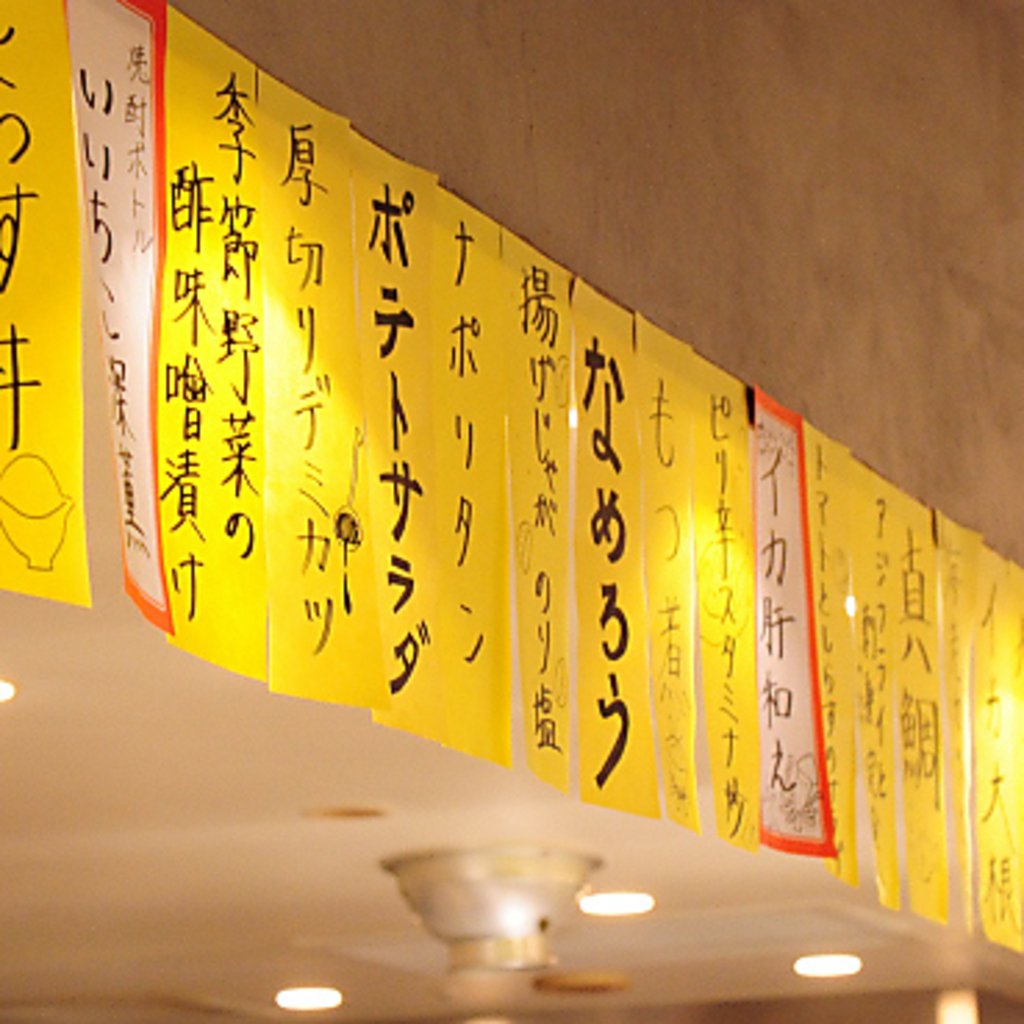 らす丼
焼酎ボトル
いいちこ深薫
季節野菜の
酢味噌漬け
厚切りデミカツ
ポテトサラダ
ナポリタン
揚げじゃが のり塩
なめろう
もつ
ピリ辛スタミナ炒
イカ肝和え
トマトとしらすの
アジフライと
真八鯛
イカ大根